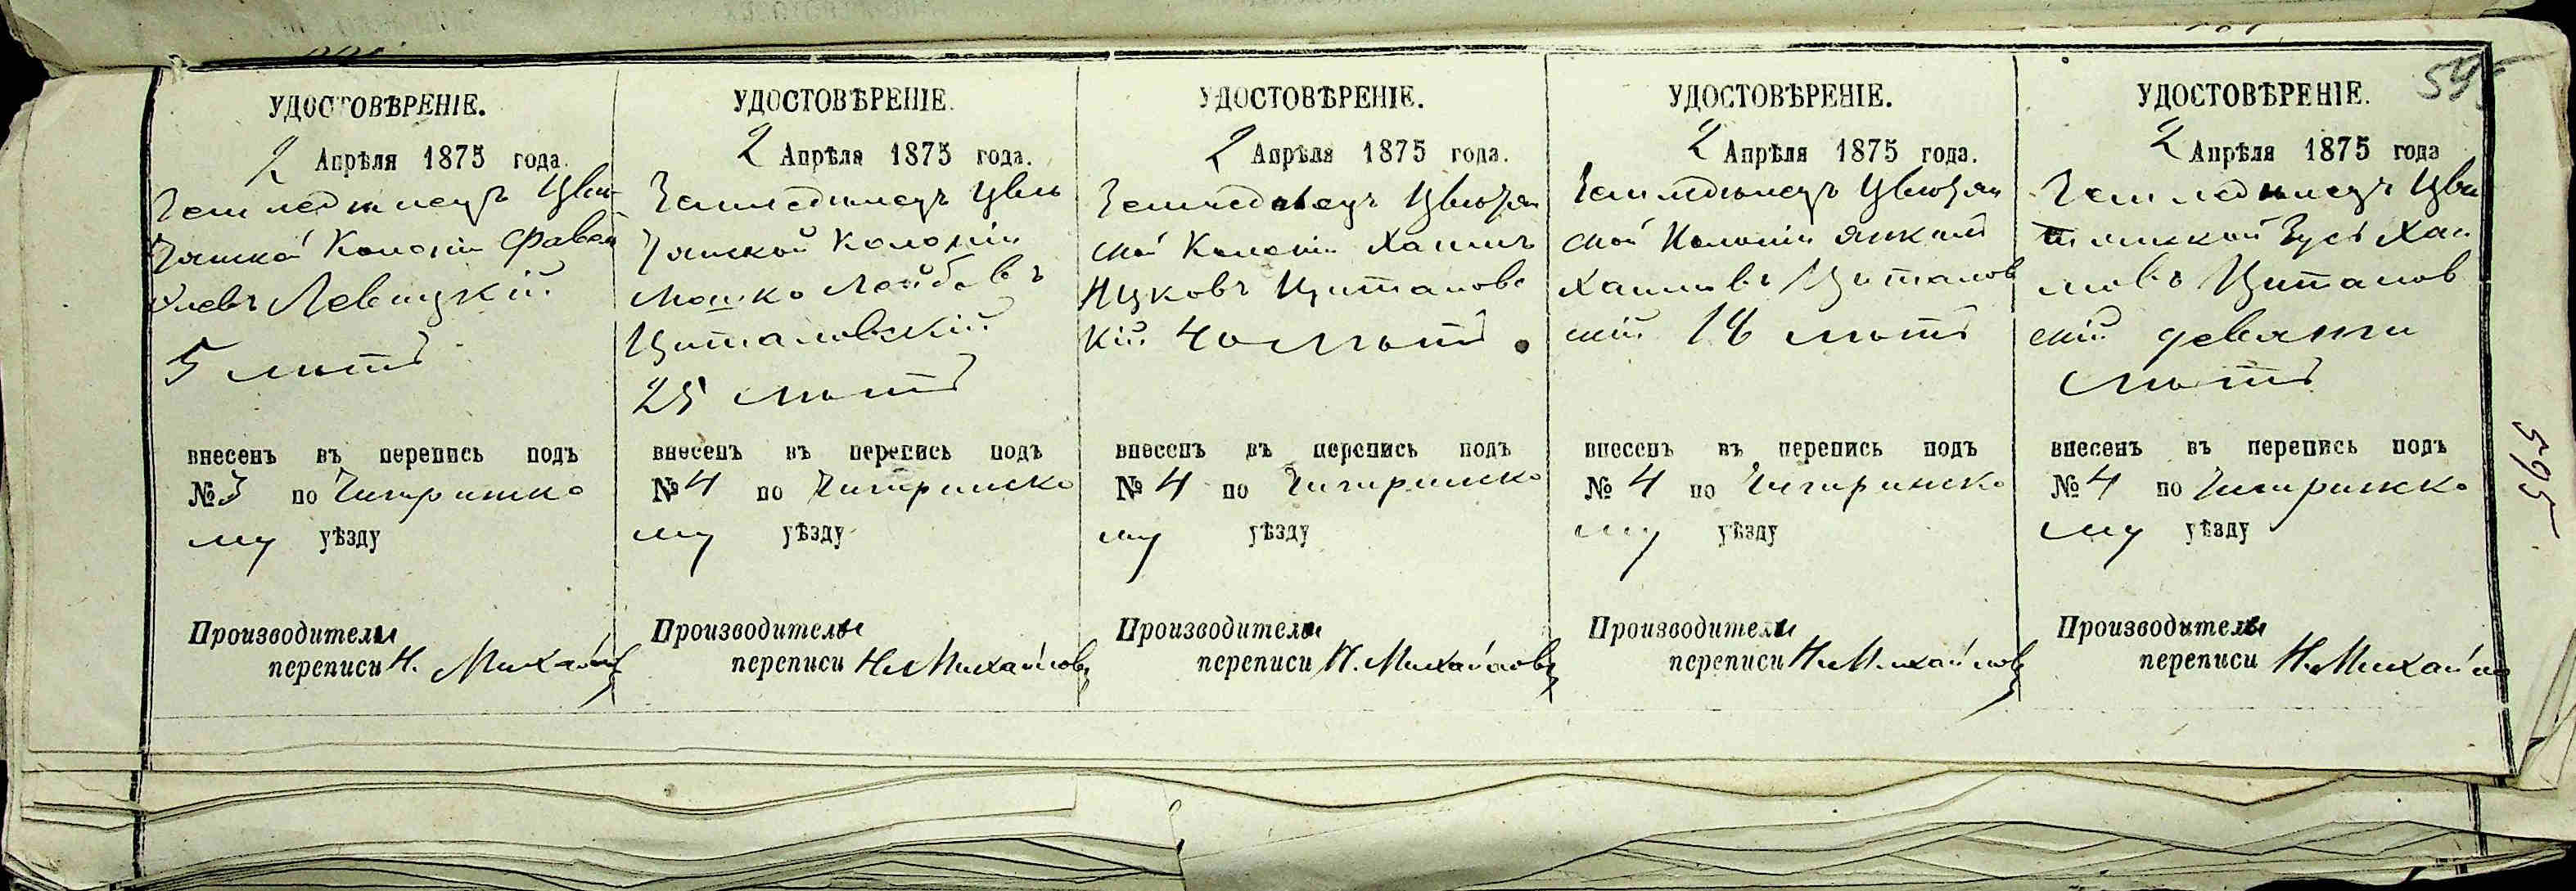 595
УДОСТОВѢРЕНІЕ.
2 Апрѣля 1875 года.
Земледѣлецъ Цвѣт-
Колоніи
Левицкій
5 лѣтъ
внесенъ въ перепись подъ
№ 3 по Чигиринско
му уѣзду
Производитель
переписи Н. Михайловъ
УДОСТОВѢРЕНІЕ.
2 Апрѣля 1875 года.
Земледѣлецъ
Колоніи
Мошко Лейбовъ
Циталовскій
25 лѣтъ
внесенъ въ перепись подъ
№ 4 по Чигиринско
му уѣзду
Производитель
переписи Н. Михайловъ
УДОСТОВѢРЕНІЕ.
2 Апрѣля 1875 года.
Земледѣлецъ
ской Колоніи Хаимъ
Ицковъ Циталовс
кій 40 лѣтъ.
внесенъ въ перепись подъ
№ 4 по Чигиринско
му уѣзду
Производитель
переписи Н. Михайловъ
УДОСТОВѢРЕНІЕ.
2 Апрѣля 1875 года.
Земледѣлецъ
ской Колоніи Янкель
Хаимовъ Циталов
скій 18 лѣтъ
внесенъ въ перепись подъ
№ 4 по Чигиринско
му уѣзду
Производитель
переписи Н. Михайловъ
УДОСТОВѢРЕНІЕ.
2 Апрѣля 1875 года
Земледѣлецъ
Зусь Хаи
мовъ Циталов
скій девяти
лѣтъ
внесенъ въ перепись подъ
№ 4 по Чигиринско
му уѣзду
Производитель
переписи Н. Михайло
595